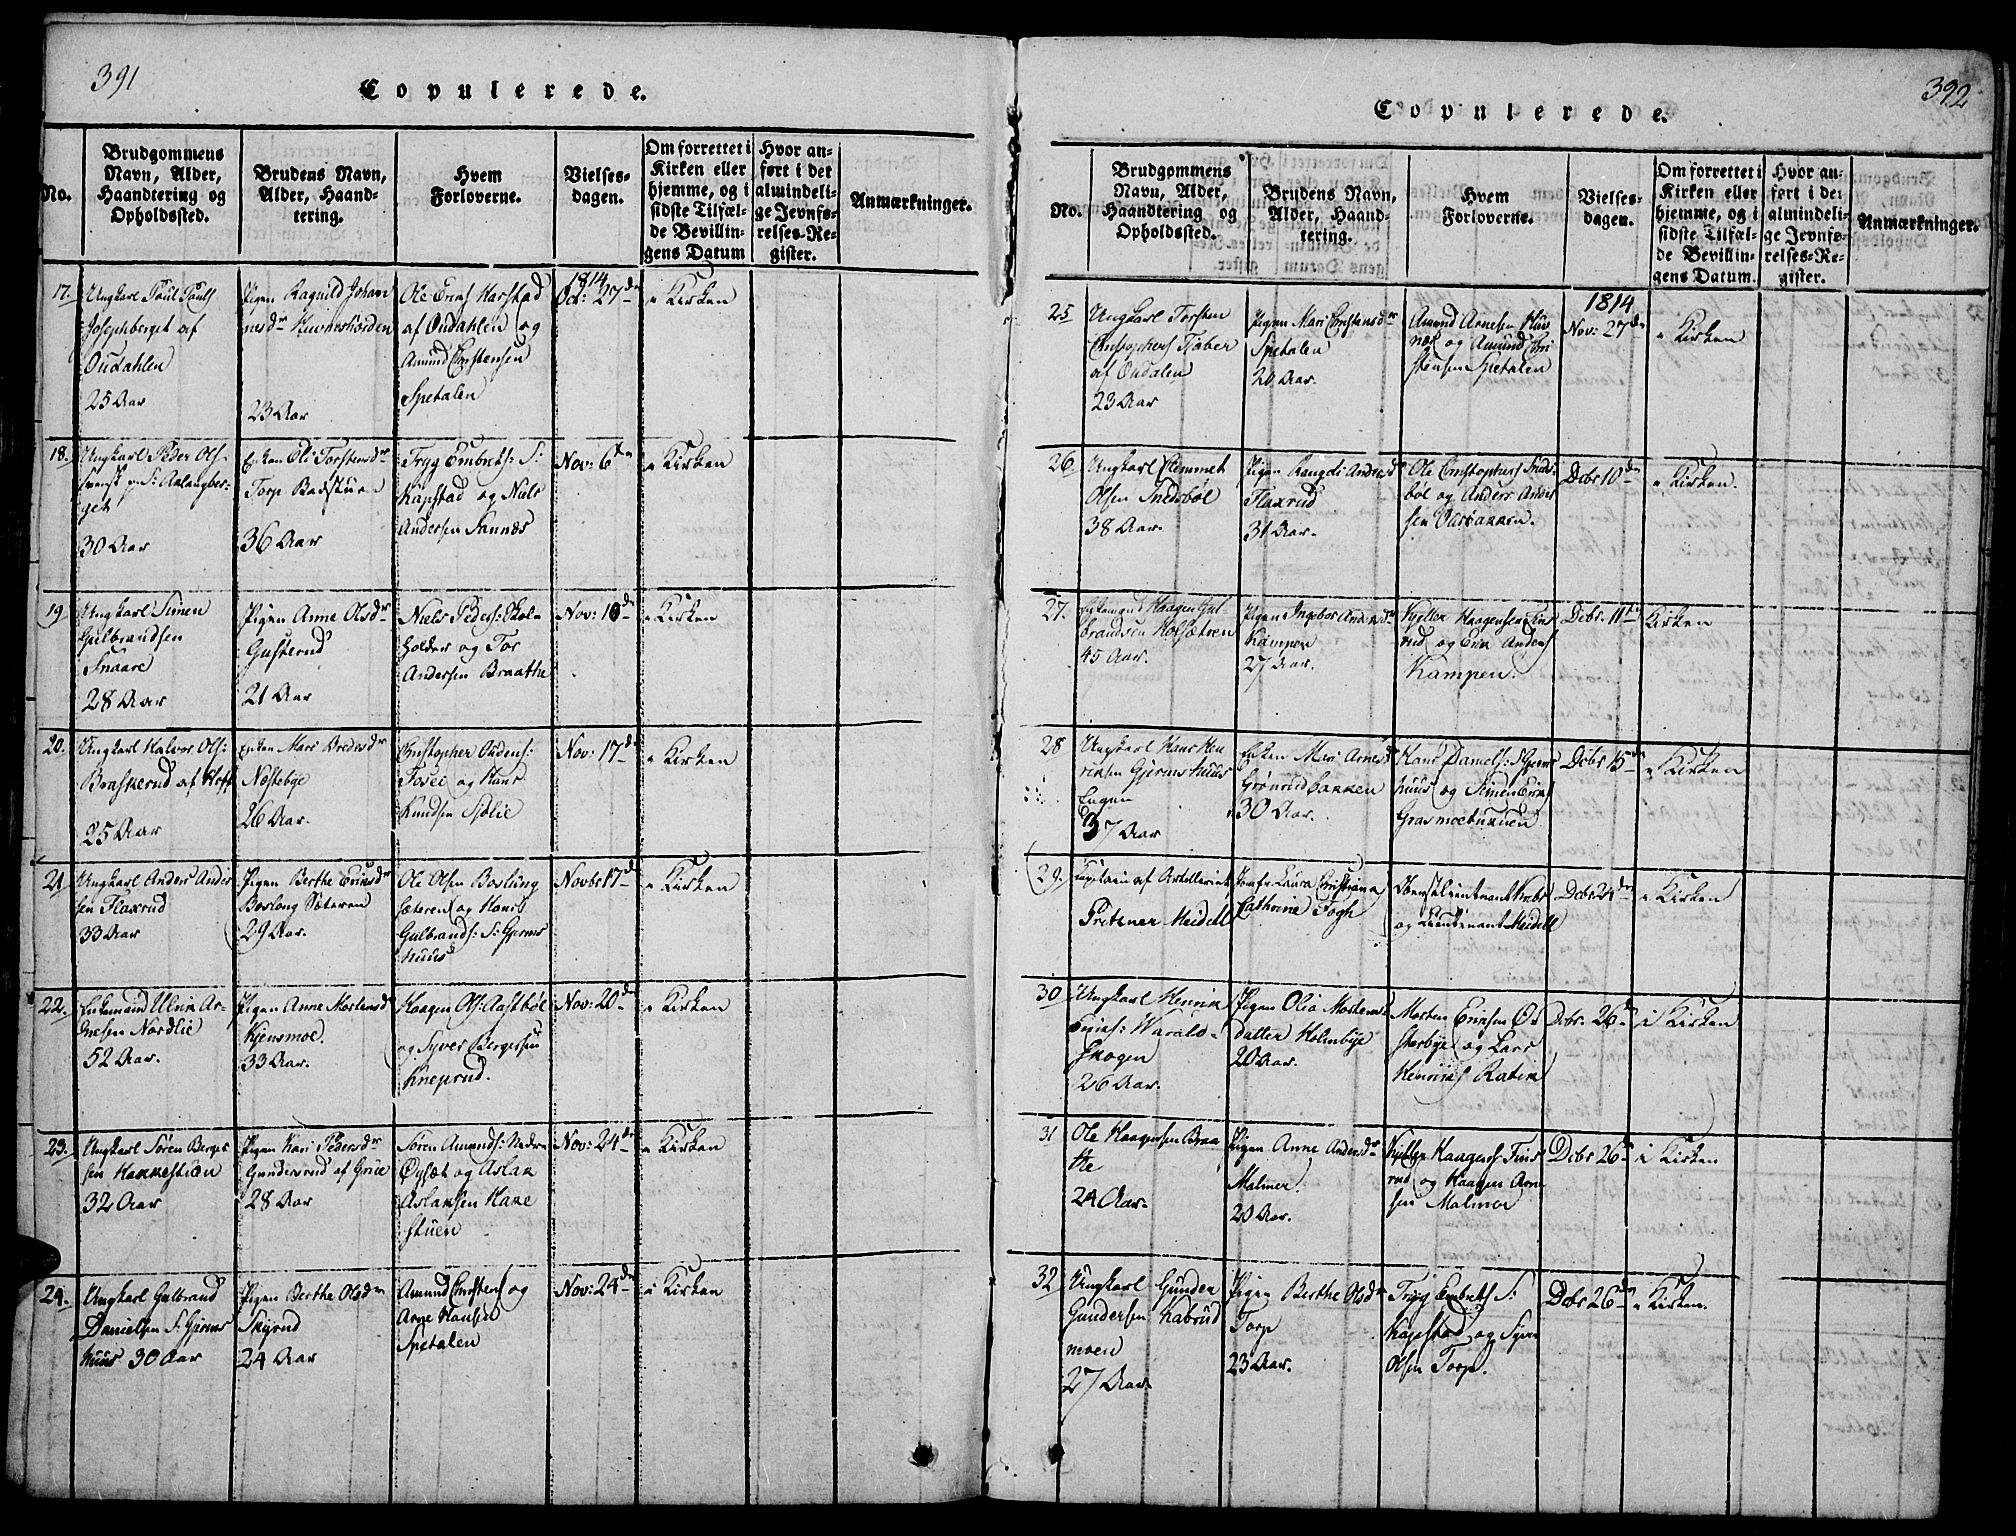 391
Copulerede.
No.
Brudgommens Navn, Alder, Haandtering og Opholdssted.
Brudens Navn, Alder, Haandtering.
Hvem Forloverne.
Vielsesdagen.
Om forrettet i Kirken eller hjemme, og i sidste Tilfælde Bevillingens Datum
Hvor anført i det almindelige Jevnførelses-Register.
Anmærkninger.
1814
17.
Ungkarl Poul Pouls
Josephberget af
Oudahlen
25 Aar
Pigen Ragnild Johan
nesdr
23 Aar
Ole Harstad
af Oudahlen og
Amund Cristensen
Spetalen
Oct: 27de
i Kirken
18.
Ungkarl Peder Ols.
get
30 Aar
Enken Oli Torstensdr
Torp Badstue
36 Aar
Tryg Embrets: S:
Kapstad og Niels
Andersen Sannæs
Nov: 6te
i Kirken
19
Ungkarl Simen
Gulbrandsen
Snaare
28 Aar
Pigen Anne Olsdr
Gusterud
21 Aar
Niels Peders: Skol
holder og Tor
Andersen Braathe
Nov: 10de
i Kirken
20.
Ungkarl Halvor Ols:
Baaskerud af Hoff
25 Aar
Enken Mari Bredesdr
Næstebye
26 Aar.
Cristopher Oudens:
Fosei og Hans
Knudsen Sælie
Nov: 17de
i Kirken
21
Ungkarl Anders Ander
sen Flaxrud
33 Aar
Pigen Berthe Erichsdr
Boslong Sæteren
29 Aar.
Ole Olsen Boslung
sæteren og Hans
Gulbrands: S: Gjerms
huus
Novbr 17de
i Kirken
22.
Enkemand Ulrik Ar-
nesen Nordlie
52 Aar.
Pigen Anne Mortensd
Kjensmoe.
33 Aar.
Haagen Ols: Aastbøl
og Syver Bergersen
Kneprud.
Nov: 20de
i Kirken
23.
Ungkarl Sören Berger
sen Hakkestuen
32 Aar
Pigen Kari Pedersdr
Gundersrud af Grue
28 Aar
Sören Amunds: Nedre
Öysæt og Aslak
Aslaksen Hake
stuen
Nov: 24de
i Kirken
24.
Ungkarl Gulbrand
Danielsen S: Gjerms
huus 30 Aar
Pigen Berthe Olsdr
Skyrud
24 Aar
Amund Cristens og
Arne Hansen
Spetalen
Nov: 24de
i Kirken
392
Copulerede.
No.
Brudgommens Navn, Alder, Haandtering og Opholdssted.
Brudens Navn, Alder, Haandtering.
Hvem Forloverne.
Vielsesdagen.
Om forrettet i Kirken eller hjemme, og i sidste Tilfælde Bevillingens Datum.
Hvor anført i det almindelige Jevnførelses-Register.
Anmærkninger.
1814
25
Ungkarl Torsten
Cristophers Tiaber
af Oudalen
23 Aar
Pigen Mari Cristensdr
Spetalen
20 Aar.
Amund Arnesen
og Amund Cri
stensen Spetalen
Nov: 27de
i Kirken
26
Ungkarl Clemmet
Olsen Snedsböl
38 Aar.
Pigen Rangdi Andersd
Flaxrud
31 Aar.
Ole Cristophers Sneds
böl og Anders Ander
sen
Debr 10de
i Kirken.
27.
Enkemand Haagen Gul
brandsen Holsætren
45 Aar.
Pigen Ingebor Andersdr
Kampen
27 Aar.
Kjeller Haagensen
rud og Erik Anders
Kampen.
Debr. 11te
i Kirken
28
Ungkarl Hans Hen
riksen Gjermshuus
Engen
37 Aar
Enken Mari Arnesd
Grönrudbakken
30 Aar.
Hans Daniels: Gjerms
huus og Simen Eriks
Grasmoebukuen
Debr 15de
i Kirken
29.
Captain af Artilleriet
Pettener Meidell
Jomfr Laura Christiana
Cathrine Fogh
Oberstlieutnant Krebs
og Lieutenant Meidell
Debr 24de
i Kirken
30
Ungkarl Henrik
Erichs: Warald
skogen
26 Aar.
Pigen Olia Mortens
datter Holmbye
20 Aar.
Morten Erichsen Ös
sterbye og Lars
Henriks Ratik
Debr. 26de
i Kirken
31
Ole Haagensen Braa
the
24 Aar.
Pigen Anne Andersdr
Malmer.
20 Aar.
Kjeller Haagens Fins
rud og Haagen Arne
sen Malmer
Debr 26de
i Kirken
32
Ungkarl Gunder
Gundersen Kabrud
moen
27 Aar
Pigen Berthe Olsdr
Torp
23 Aar.
Tryg Embrets S:
Kapstad og Syver
Olsen Torp.
Debr 26de
i Kirken.